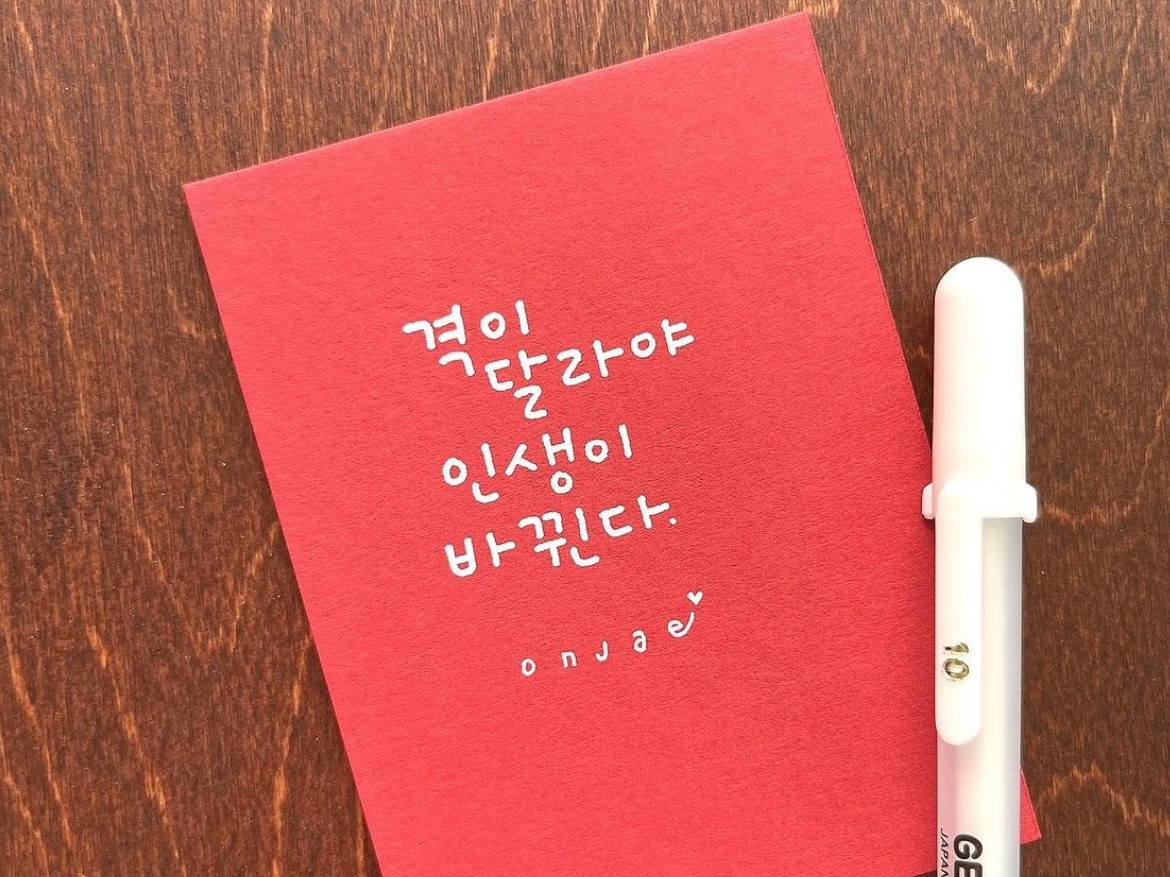 격이
달라야
인생이
바뀐다.
onjae
10
GE
JAPAN